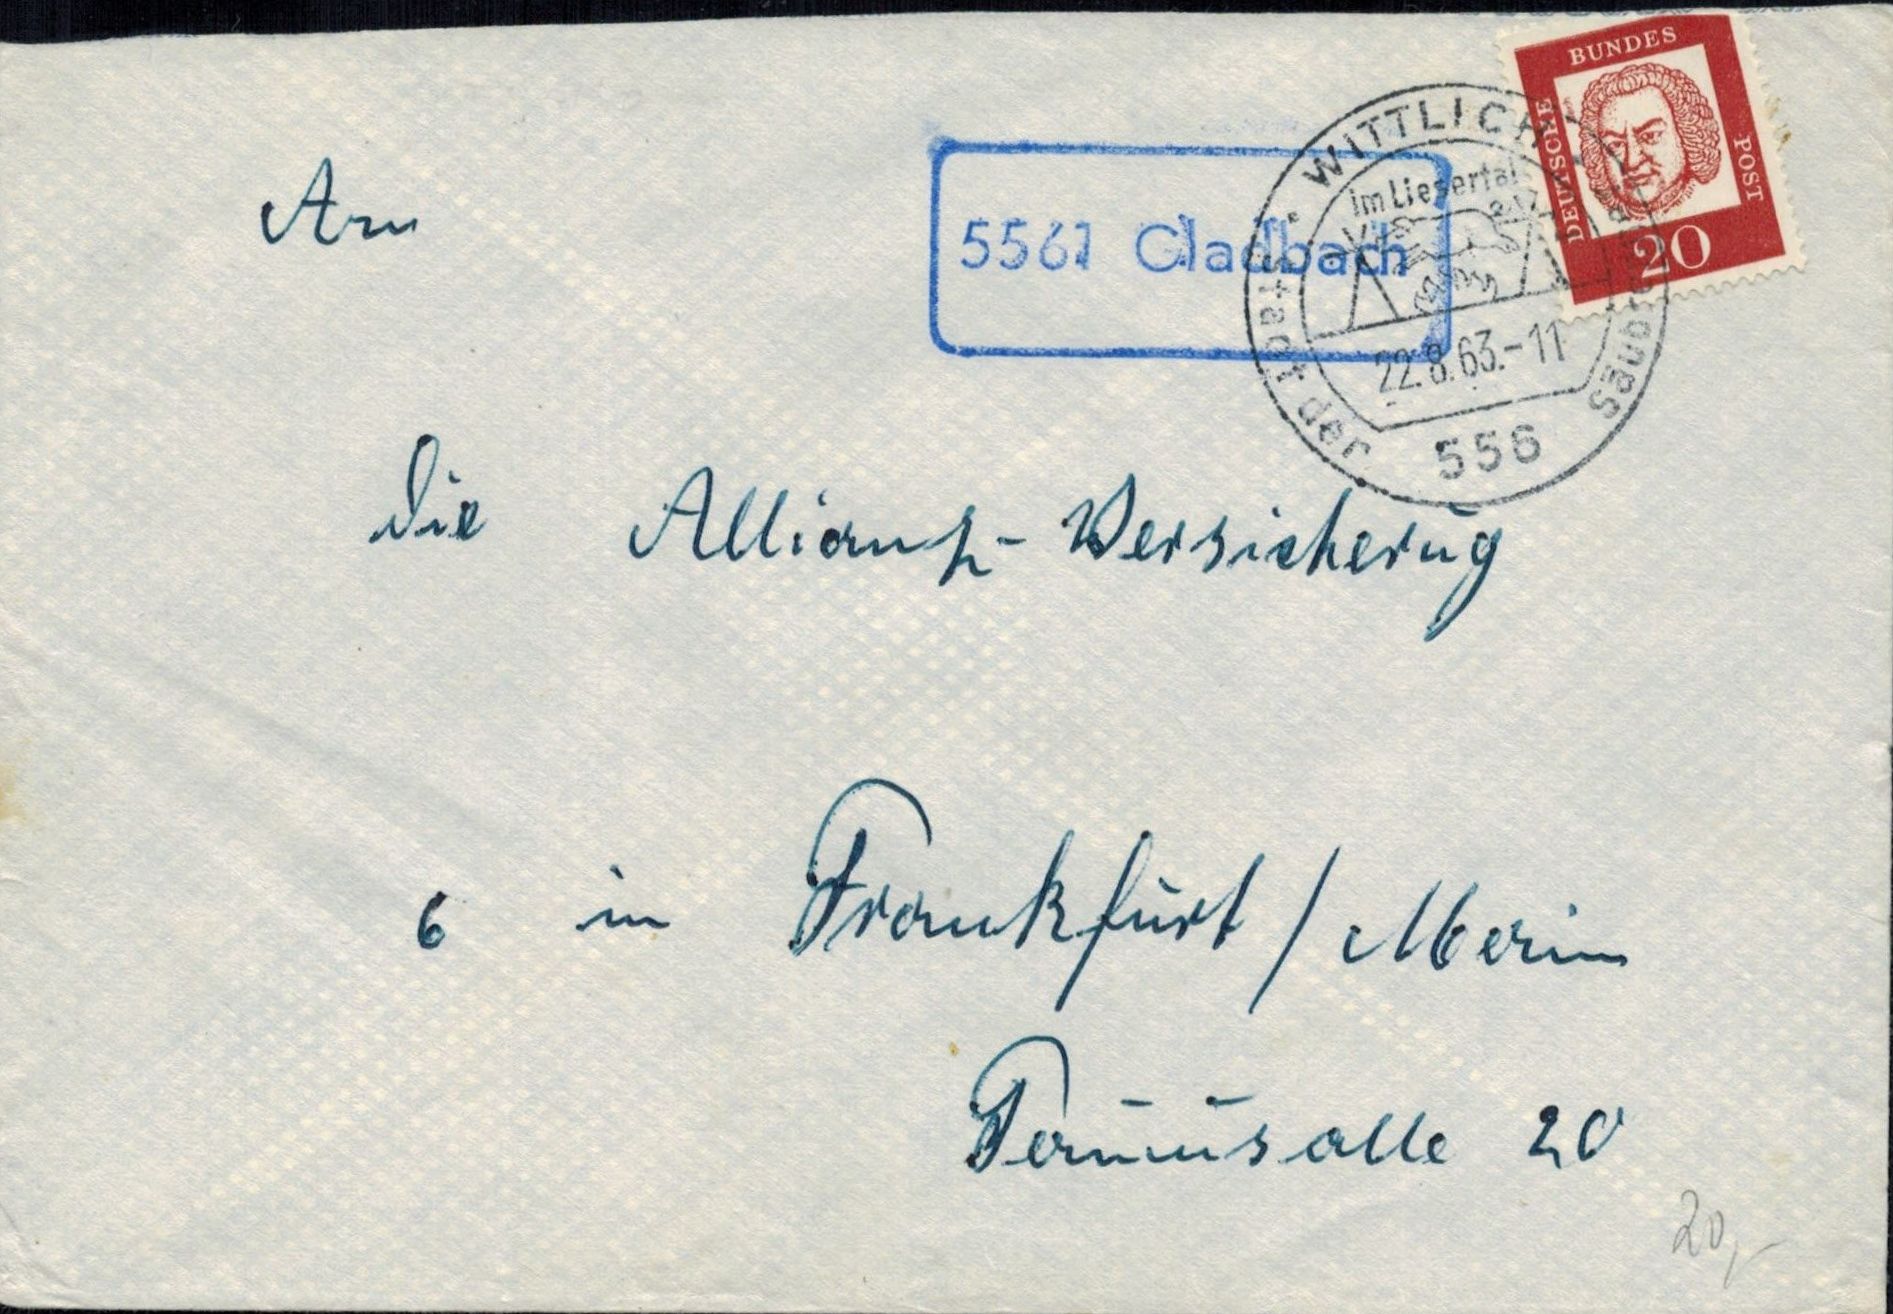 BUNDES
DEUTSCHE
POST
20
WITTLICH
im Liesertal
22.8.63.-11
556
der Stadt des Säubrenner
5561 Gladbach
An
die Allianz-Versicherug
6 in Frankfurt / Main
Taunusalle 20
20,-